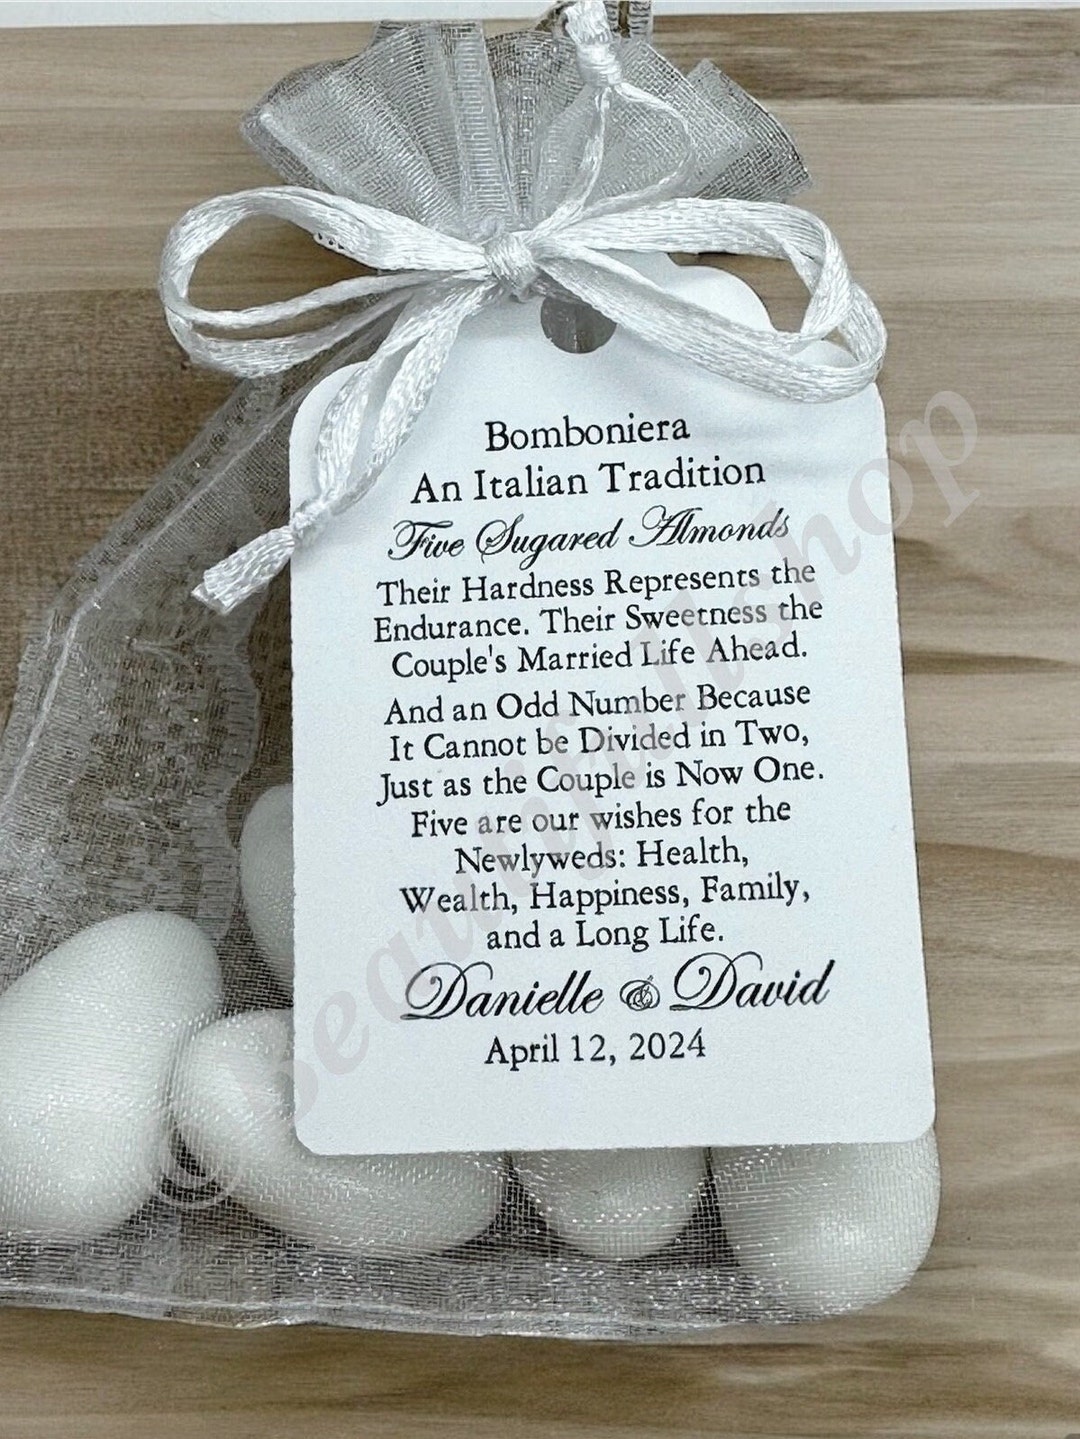 Bomboniera
An Italian Tradition
Five Sugared Almonds
Their Hardness Represents the
Endurance. Their Sweetness the
Couple's Married Life Ahead.
And an Odd Number Because
It Cannot be Divided in Two,
Just as the Couple is Now One.
Five are our wishes for the
Newlyweds: Health,
Wealth, Happiness, Family,
and a Long Life.
Danielle & David
April 12, 2024
©beautifullshop